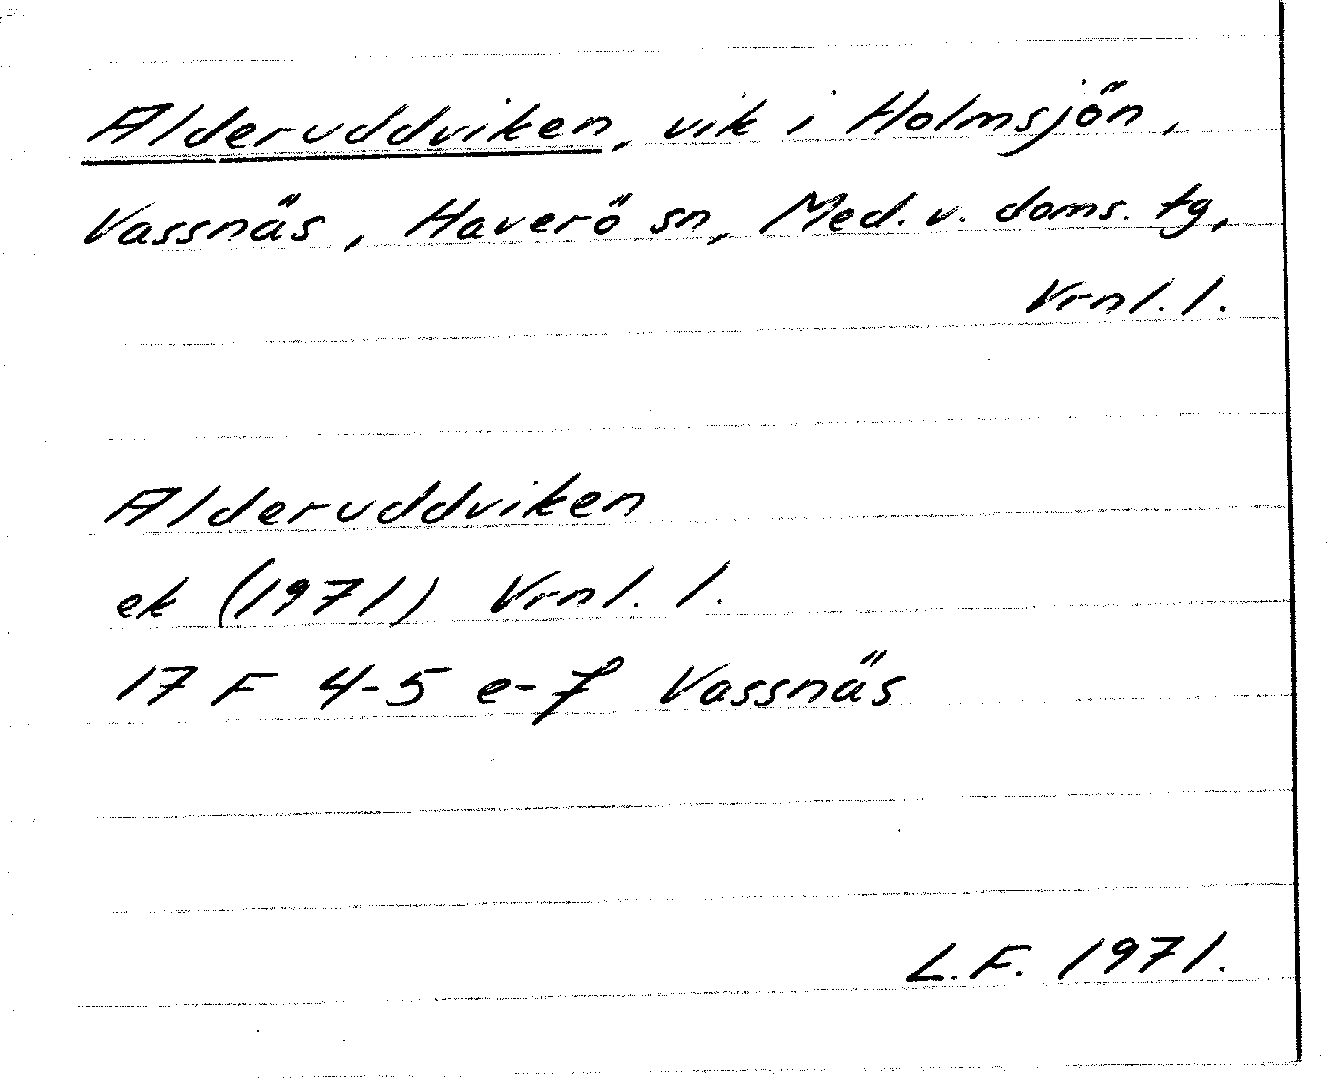 Alderuddviken, vik i Holmsjön,
Vassnäs, Haverö sn, Med. v. doms. tg,
Vrnl. l.
Alderuddviken
ek (1971) Vrnl. l.
17 F 4-5 e-f Vassnäs
L.F. 1971.